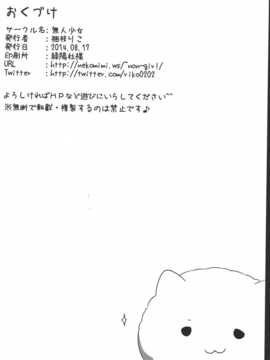 おくづけ
サークル名：無人少女
発行者　：柚枝りこ
発行日　：2014.08.17
印刷所　：緑陽社様
URL　：http://nekomimi.ws/~non-girl/
Twitter　：http://twitter.com/riko0202
よろしければHPなど遊びにいらしてください^^
※無断で転載・複製するのは禁止です♪